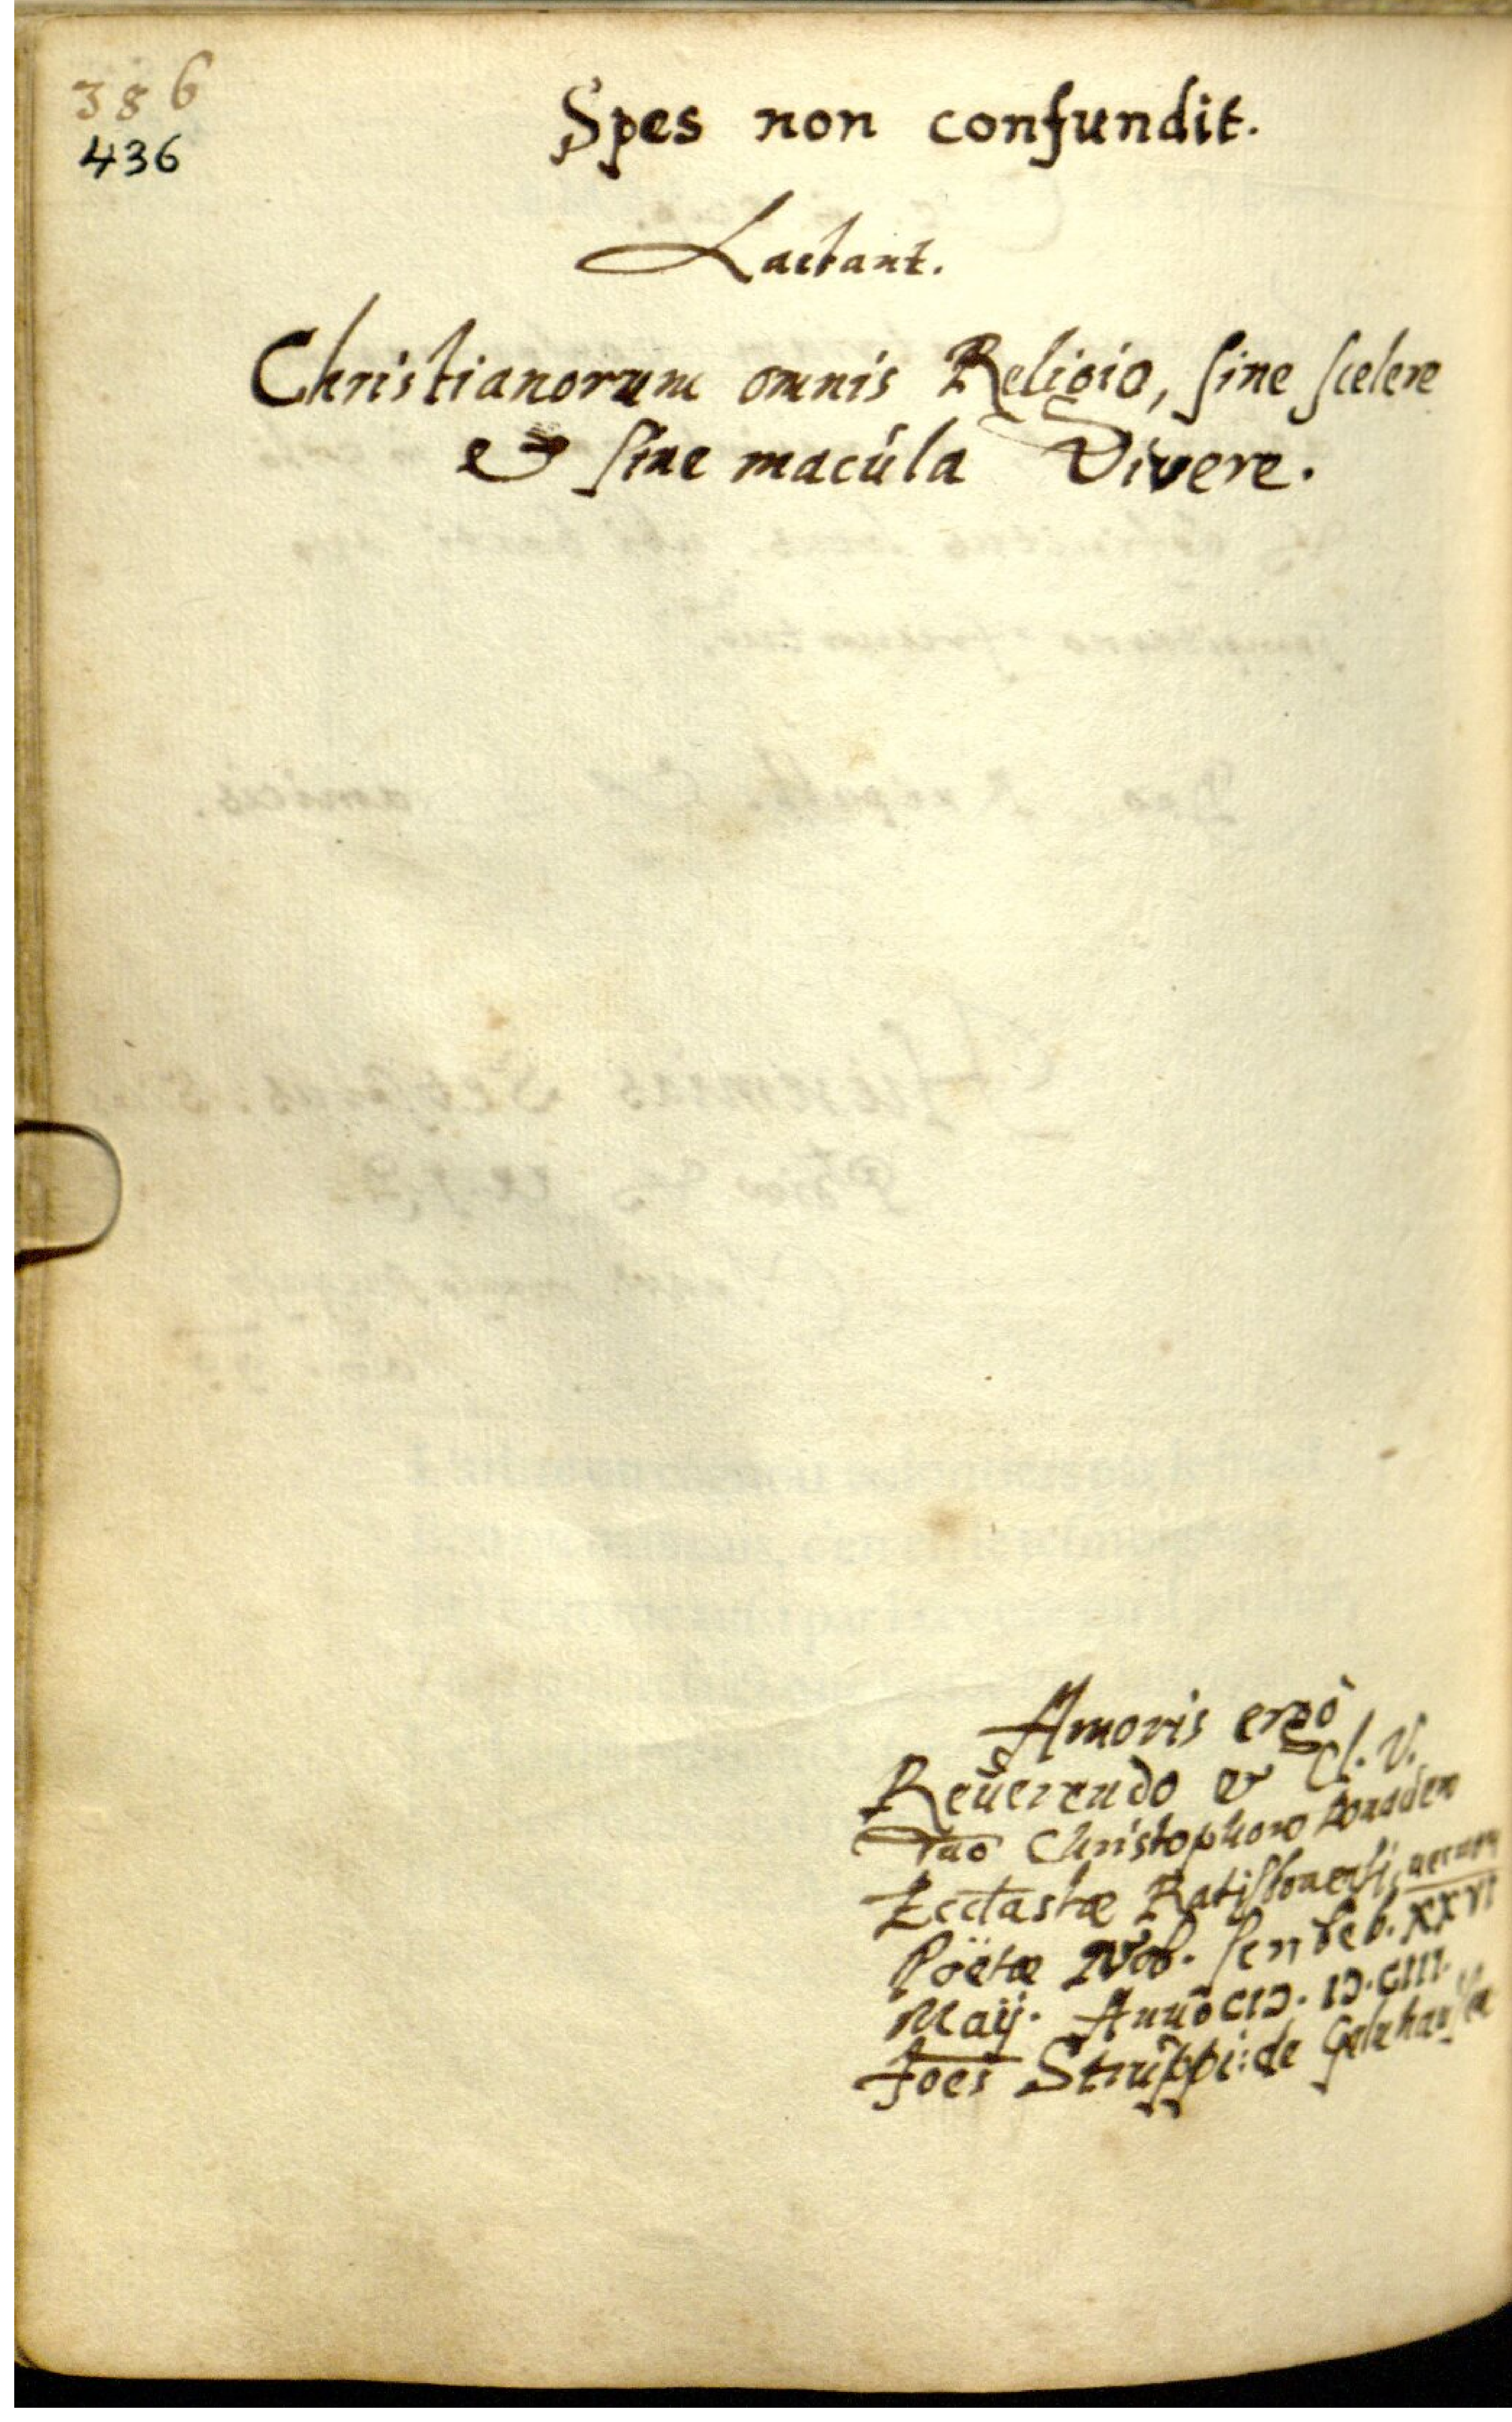 386
436
Spes non confundit.
Lactant.
Christianorum omnis Religio, sine scelere
& sine macúla vivere.
Amoris ergò
Reuerendo & Cl. V.
Dnō Christophoro Donauero
Ecctastæ Ratisbonensi,
Poëtæ Nob. scribeb. XXVI
Maÿ. Annō CIↃ. IↃ. CIII.
Joēs Struppi: de Gelnhausen